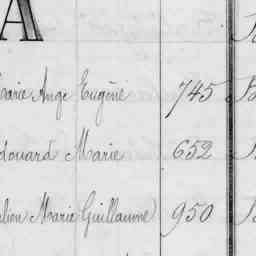 A
Marie Ange Eugène 745
Edouard Marie 652
Marie Guillaume 950